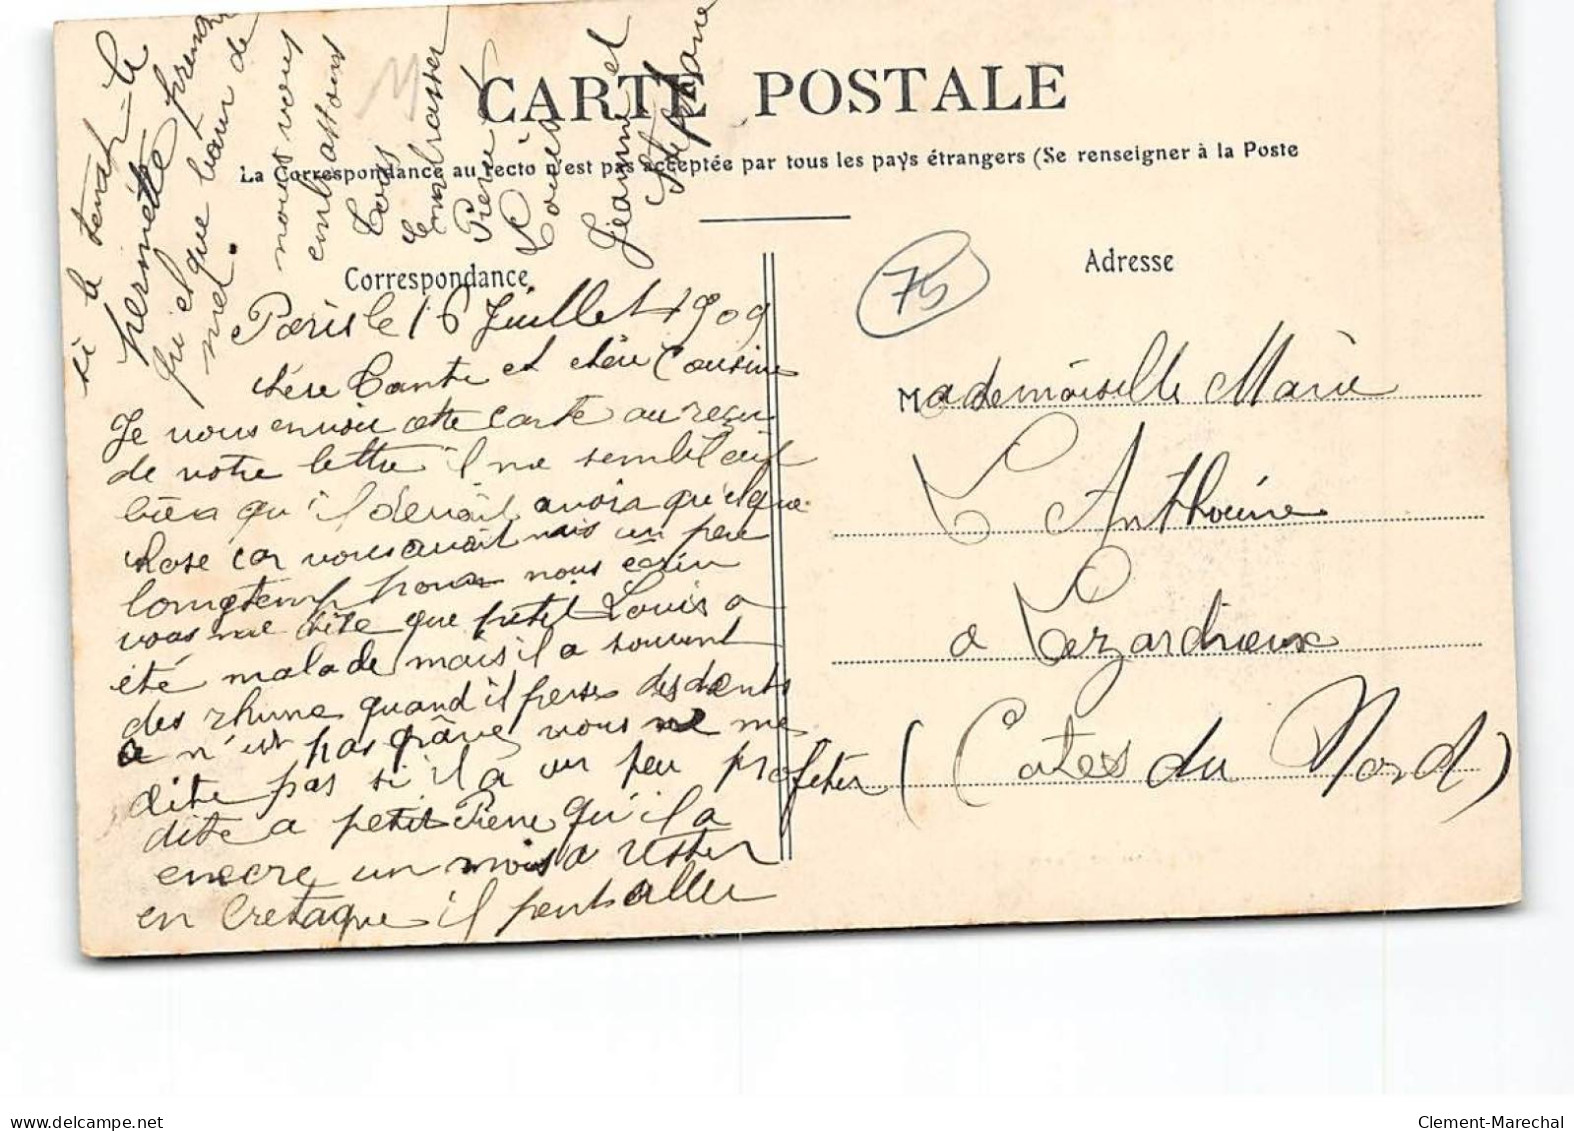 CARTE POSTALE
La Correspondance au recto n'est pas acceptée par tous les pays étrangers (Se renseigner à la Poste
Correspondance
Adresse
75
Paris le 16 Juillet 1909
chère Tante et chère Cousine
Je vous envoie cette carte au reçu
de votre lettre il me semblait
bien qu'il devait avoir quelque
chose car vous avait mis un peu
longtemp pour nous écrire
vous me dite que petit Louis a
été malade mais il a souvent
des rhume quand il perse des dents
ce n'est pas grâve vous ne me
dite pas si il a un peu profiter
dite a petit Pierre qu'il a
encore un mois a rester
en Bretagne il peut aller
si le temps le
permette prendre
quelque bain de
mer.
nous vous
embrassons
Tous
Embrasser
Pierre
Louis
Jeanne et
Stephane
Mademoiselle Marie
L Anthoine
a Lezardrieux
(Cotes du Nord)
Clement-Marechal
www.delcampe.net